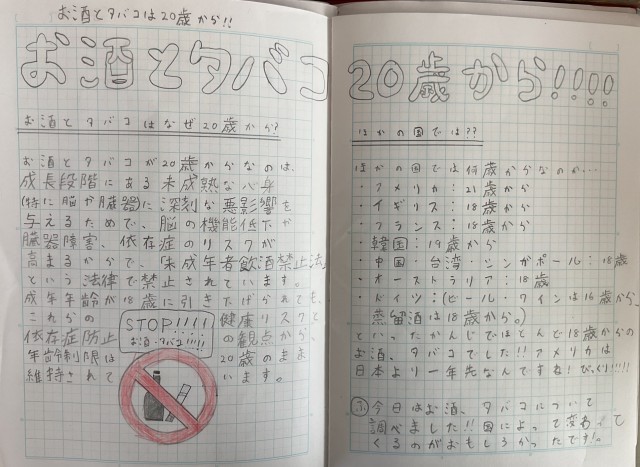 お酒とタバコは20歳から!!
お酒とタバコ 20歳から!!!!
お酒とタバコはなぜ20歳から?
お酒とタバコが20歳からなのは、
成長段階にある未成熟な心身
(特に脳か臓器)に深刻な悪影響を
与えるためで、脳の機能低下か
臓器障害、依存症のリスクが
高まるからで、「未成年者飲酒禁止法」
という法律で禁止されています。
成年年齢が18歳に引き下げられても、
これらの健康リスクと
依存症防止の観点から、
年齢制限は20歳のまま
維持されています。
STOP!!!!
お酒・タバコ!!!!!
ほかの国では??
ほかの国では何歳からなのか…
・アメリカ:21歳から
・イギリス:18歳から
・フランス:18歳から
・韓国:19歳から
・中国・台湾・シンガポール:18歳
・オーストラリア:18歳
・ドイツ:(ビール・ワインは16歳から、
蒸留酒は18歳から。)
といったかんじでほとんど18歳からの
お酒、タバコでした!!アメリカは
日本より一年先なんですね!びっくり!!!!
ふ今日はお酒、タバコについて
調べました!!国によって変わって
くるのがおもしろかったです!。